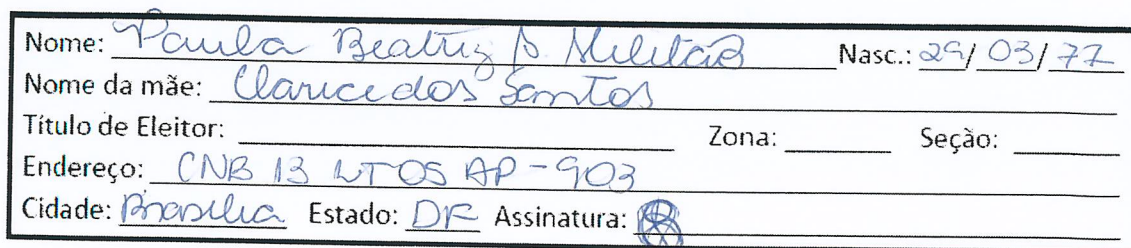 Nome: Paula Beatriz S. Militão Nasc.: 29/03/77
Nome da mãe: Clarice dos Santos
Título de Eleitor: Zona: Seção:
Endereço: CNB 13 LT 05 AP-903
Cidade: Brasília Estado: DF Assinatura: